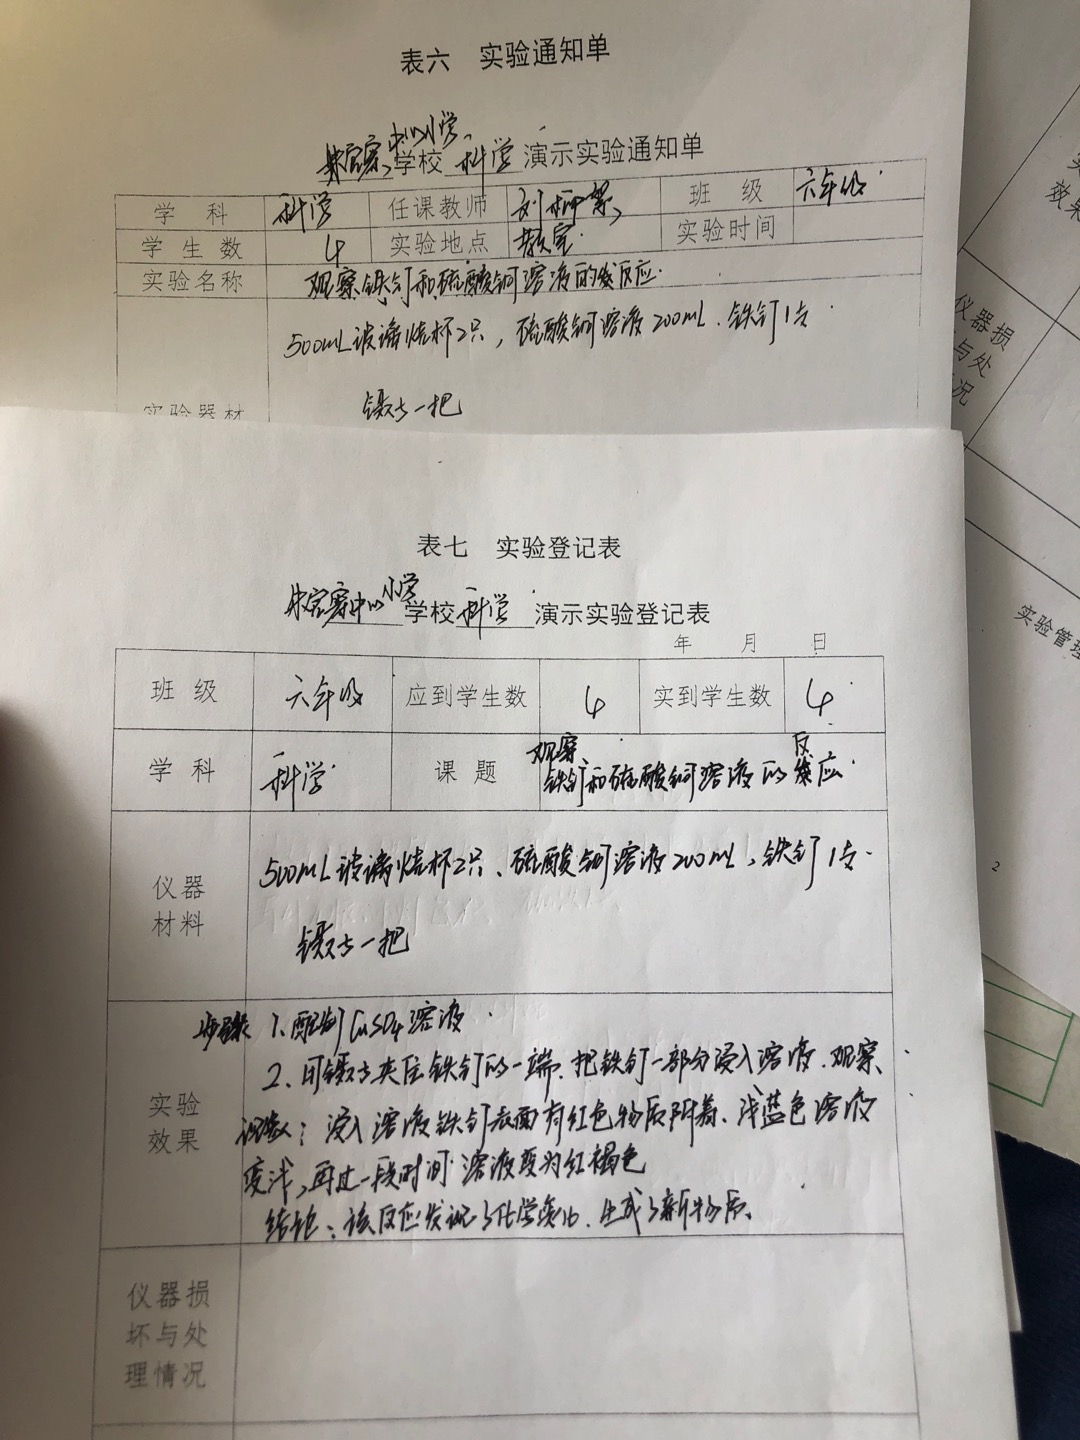 表六 实验通知单
中心小学
学校 科学 演示实验通知单
学科 科学 任课教师 班级 六年级
学生数 4 实验地点 教室 实验时间
实验名称 观察铁钉和硫酸铜溶液的反应
500mL玻璃烧杯2只，硫酸铜溶液200mL．铁钉1支
实验器材 镊子一把
表七 实验登记表
中心小学
学校 科学 演示实验登记表
年 月 日
班级 六年级 应到学生数 4 实到学生数 4
学科 科学 课题 观察铁钉和硫酸铜溶液的反应
仪器材料 500mL玻璃烧杯2只、硫酸铜溶液200mL，铁钉1支．
镊子一把
步骤 1、配制CuSO4溶液
2、用镊子夹住铁钉的一端．把铁钉一部分浸入溶液．观察
实验效果 现象：浸入溶液铁钉表面有红色物质附着、浅蓝色溶液
变浅，再过一段时间溶液变为红褐色
结论：该反应发现了化学变化．生成了新物质。
仪器损坏与处理情况
仪器损
与处
况
实验管理
2